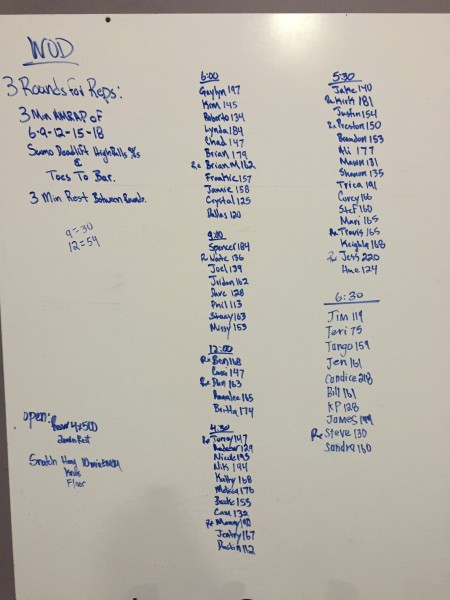 WOD
3 Rounds For Reps:
3 Min AMRAP of
6-9-12-15-18
Sumo Deadlift High Pulls
&
Toes To Bar.
3 Min Rest Between Rounds.
9=30
12=54
open:
Rest
Snatch
Floor
6:00
Gaylyn 197
Kim 145
Roberto 134
Lynda 184
Chad 147
Brian 179
Rx Brian M 162
Frankie 157
Jamie 158
Crystal 125
Dallas 120
9:00
Spencer 184
R Nate 136
Joel 139
Jordan 162
Dave 128
Phil 113
Stacy 163
Missy 153
12:00
Rx Ben 168
147
Rx Dan 163
Annalee 165
Britta 174
4:30
Rx Torrey 147
129
Nicole 193
Nik 194
Kathy 168
176
153
Cam 132
Rx Manny 190
Jentry 167
Dustin 112
5:30
Jake 140
Rx Kirk 181
Justin 154
Rx Preston 150
Brandon 153
Ali 177
Mason 131
Shannon 135
Trica 191
Corey 166
Stef 160
Mari 165
Rx Travis 165
Keighla 168
Rx Jess 220
124
6:30
Jim 119
Teri 75
Tango 159
Jen 161
Candice 218
Bill 161
KP 128
James 199
Rx Steve 130
Sandra 160